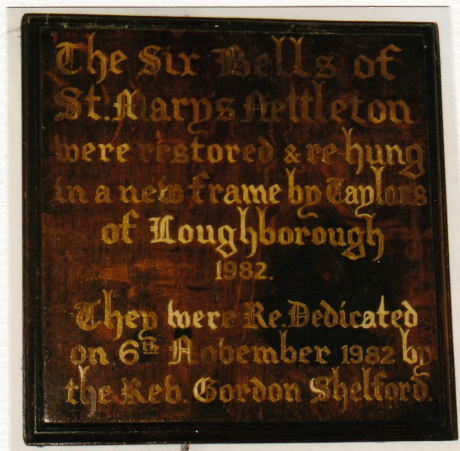 The Six Bells of
St. Mary's Nettleton
were restored & re-hung
in a new frame by Taylors
of Loughborough
1982.
They were Re.Dedicated
on 6th November 1982 by
the Rev. Gordon Shelford.